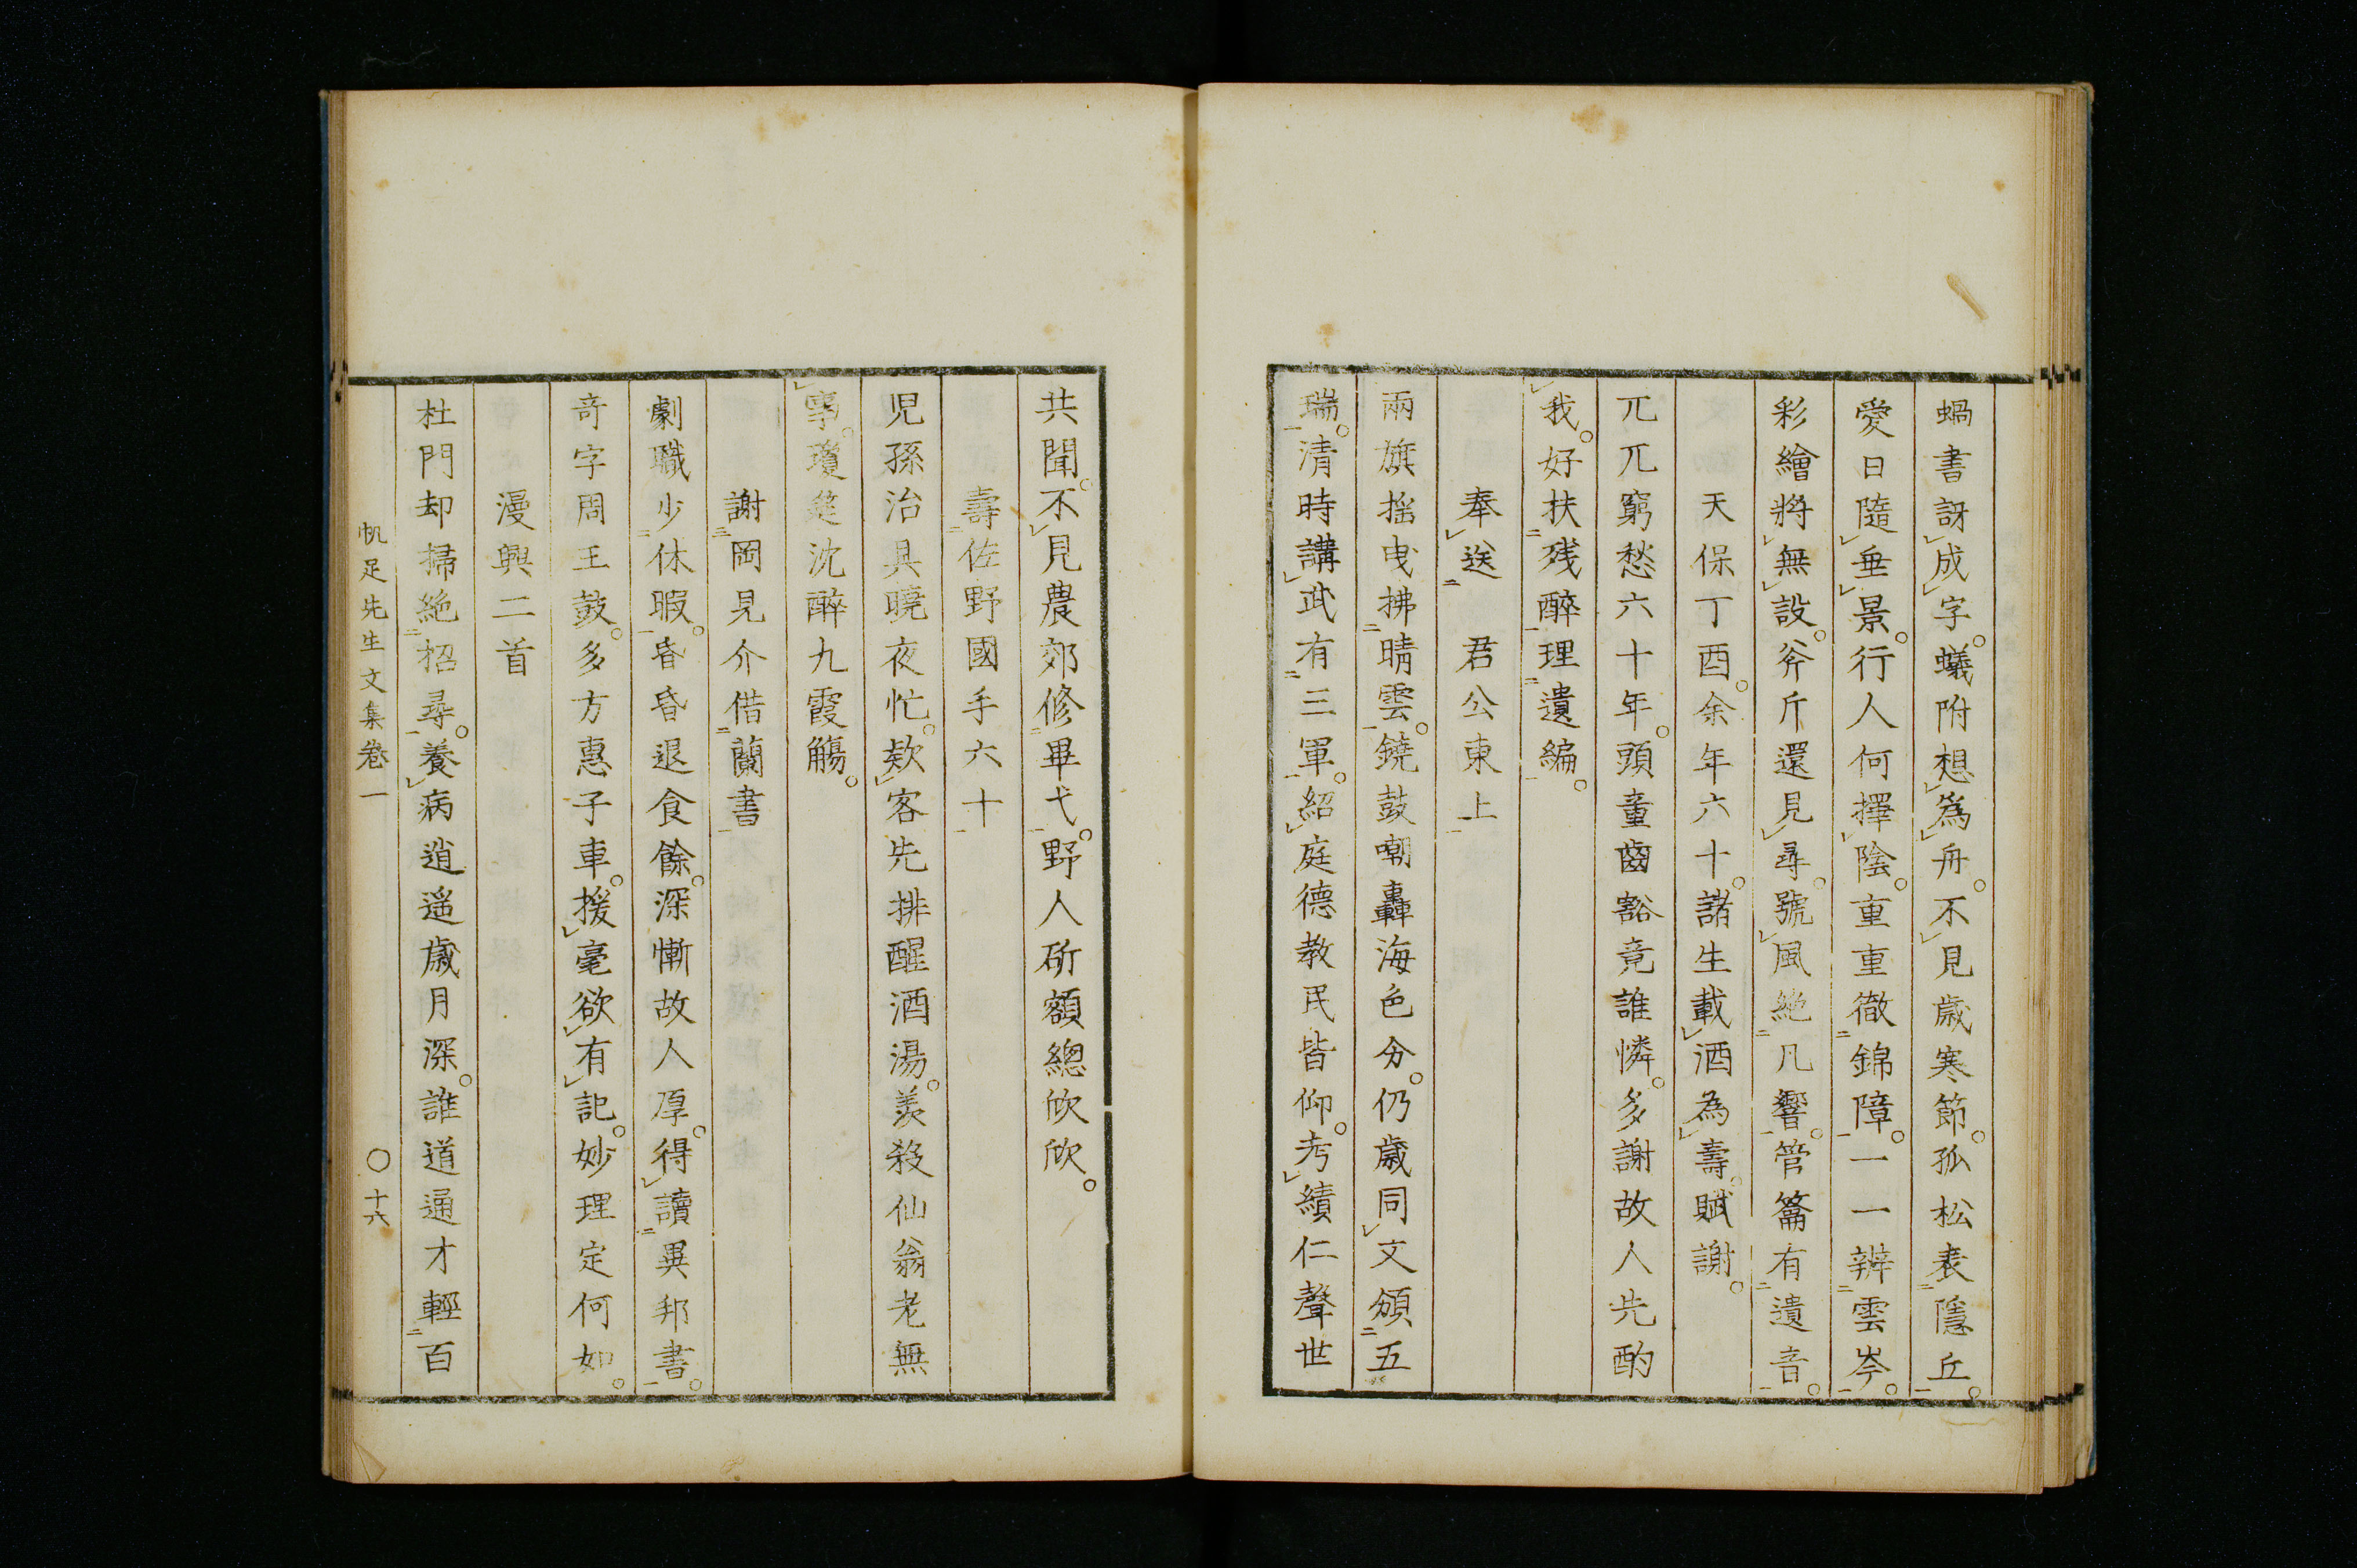 蝸書訝成字。蟻附想為舟。不見歳寒節。孤松表隱丘。
愛日隨垂景。行人何擇陰。重重徹錦障。一一辨雲岑。
彩繪將無設。斧斤還見尋。號風絶凡響。管籥有遺音。
天保丁酉。余年六十。諸生載酒為壽。賦謝。
兀兀窮愁六十年。頭童齒豁竟誰憐。多謝故人先酌
我。好扶残醉理遺編。
奉送 君公東上
兩旗搖曳拂晴雲。鐃鼓嘲轟海色分。仍歳同文頒五
瑞。清時講武有三軍。紹庭德教民皆仰。考績仁聲世
共聞。不見農郊修畢弋。野人斫額總欣欣。
壽佐野國手六十
児孫治具曉夜忙。欵客先排醒酒湯。羨殺仙翁老無
事。瓊筵沈醉九霞觴。
謝岡見介借蘭書
劇職少休暇。昏昏退食餘。深慚故人厚。得讀異邦書。
奇字周王鼓。多方惠子車。援毫欲有記。妙理定何如。
漫興二首
杜門却掃絶招尋。養病逍遥歳月深。誰道通才輕百
帆足先生文集卷一 〇十六